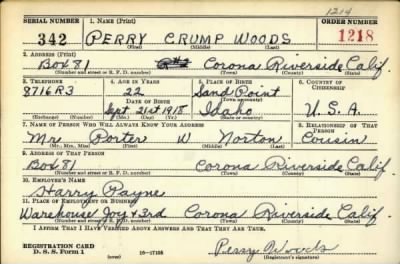 1214
SERIAL NUMBER 1. NAME (Print) ORDER NUMBER
342 PERRY CRUMP WOODS 1218
(First) (Middle) (Last)
2. ADDRESS (Print)
Box 81 R#2 Corona Riverside Calif.
(Number and street or R. F. D. number) (Town) (County) (State)
3. TELEPHONE 4. AGE IN YEARS 5. PLACE OF BIRTH 6. COUNTRY OF CITIZENSHIP
8716R3 22 Sand Point
DATE OF BIRTH (Town or county)
Sept 21st 1918 Idaho U.S.A.
(Exchange) (Number) (Mo.) (Day) (Yr.) (State or country)
7. NAME OF PERSON WHO WILL ALWAYS KNOW YOUR ADDRESS 8. RELATIONSHIP OF THAT PERSON
Mr Porter W Norton Cousin
(Mr., Mrs., Miss) (First) (Middle) (Last)
9. ADDRESS OF THAT PERSON
Box 81 Corona Riverside Calif.
(Number and street or R. F. D. number) (Town) (County) (State)
10. EMPLOYER'S NAME
Harry Payne
11. PLACE OF EMPLOYMENT OR BUSINESS
Warehouse Joy & 3rd Corona Riverside Calif.
(Number and street or R. F. D. number) (Town) (County) (State)
I AFFIRM THAT I HAVE VERIFIED ABOVE ANSWERS AND THAT THEY ARE TRUE.
REGISTRATION CARD
D. S. S. Form 1 (over) 16-17105 Perry Woods
(Registrant's signature)